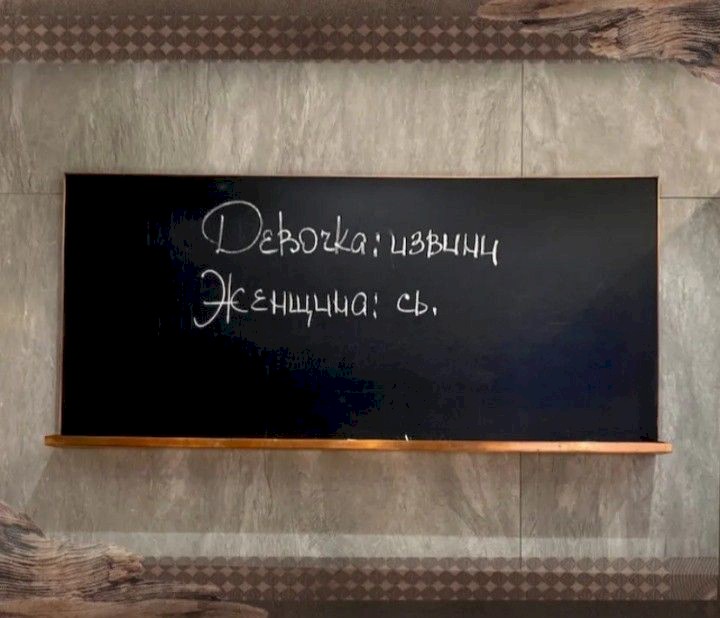 Девочка: извини
Женщина: сь.